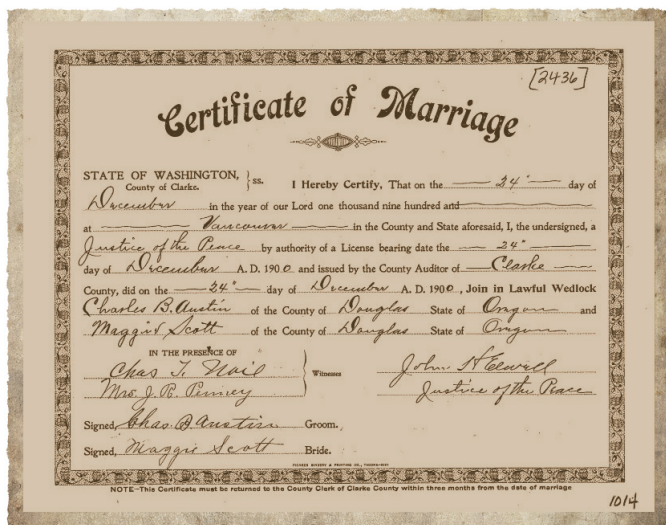 [2436]
Certificate of Marriage
STATE OF WASHINGTON, } ss.
County of Clarke.
I Hereby Certify, That on the 24" day of
December in the year of our Lord one thousand nine hundred and
at Vancouver in the County and State aforesaid, I, the undersigned, a
Justice of the Peace by authority of a License bearing date the 24"
day of December A. D. 1900 and issued by the County Auditor of Clarke
County, did on the 24" day of December A. D. 1900, Join in Lawful Wedlock
Charles B. Austin of the County of Douglas State of Oregon and
Maggie Scott of the County of Douglas State of Oregon
IN THE PRESENCE OF
Chas T. } Witnesses John H Elwell
Mrs. J. R. Justice of the Peace
Signed, Chas B Austin Groom.
Signed, Maggie Scott Bride.
NOTE-This Certificate must be returned to the County Clerk of Clarke County within three months from the date of marriage
1014